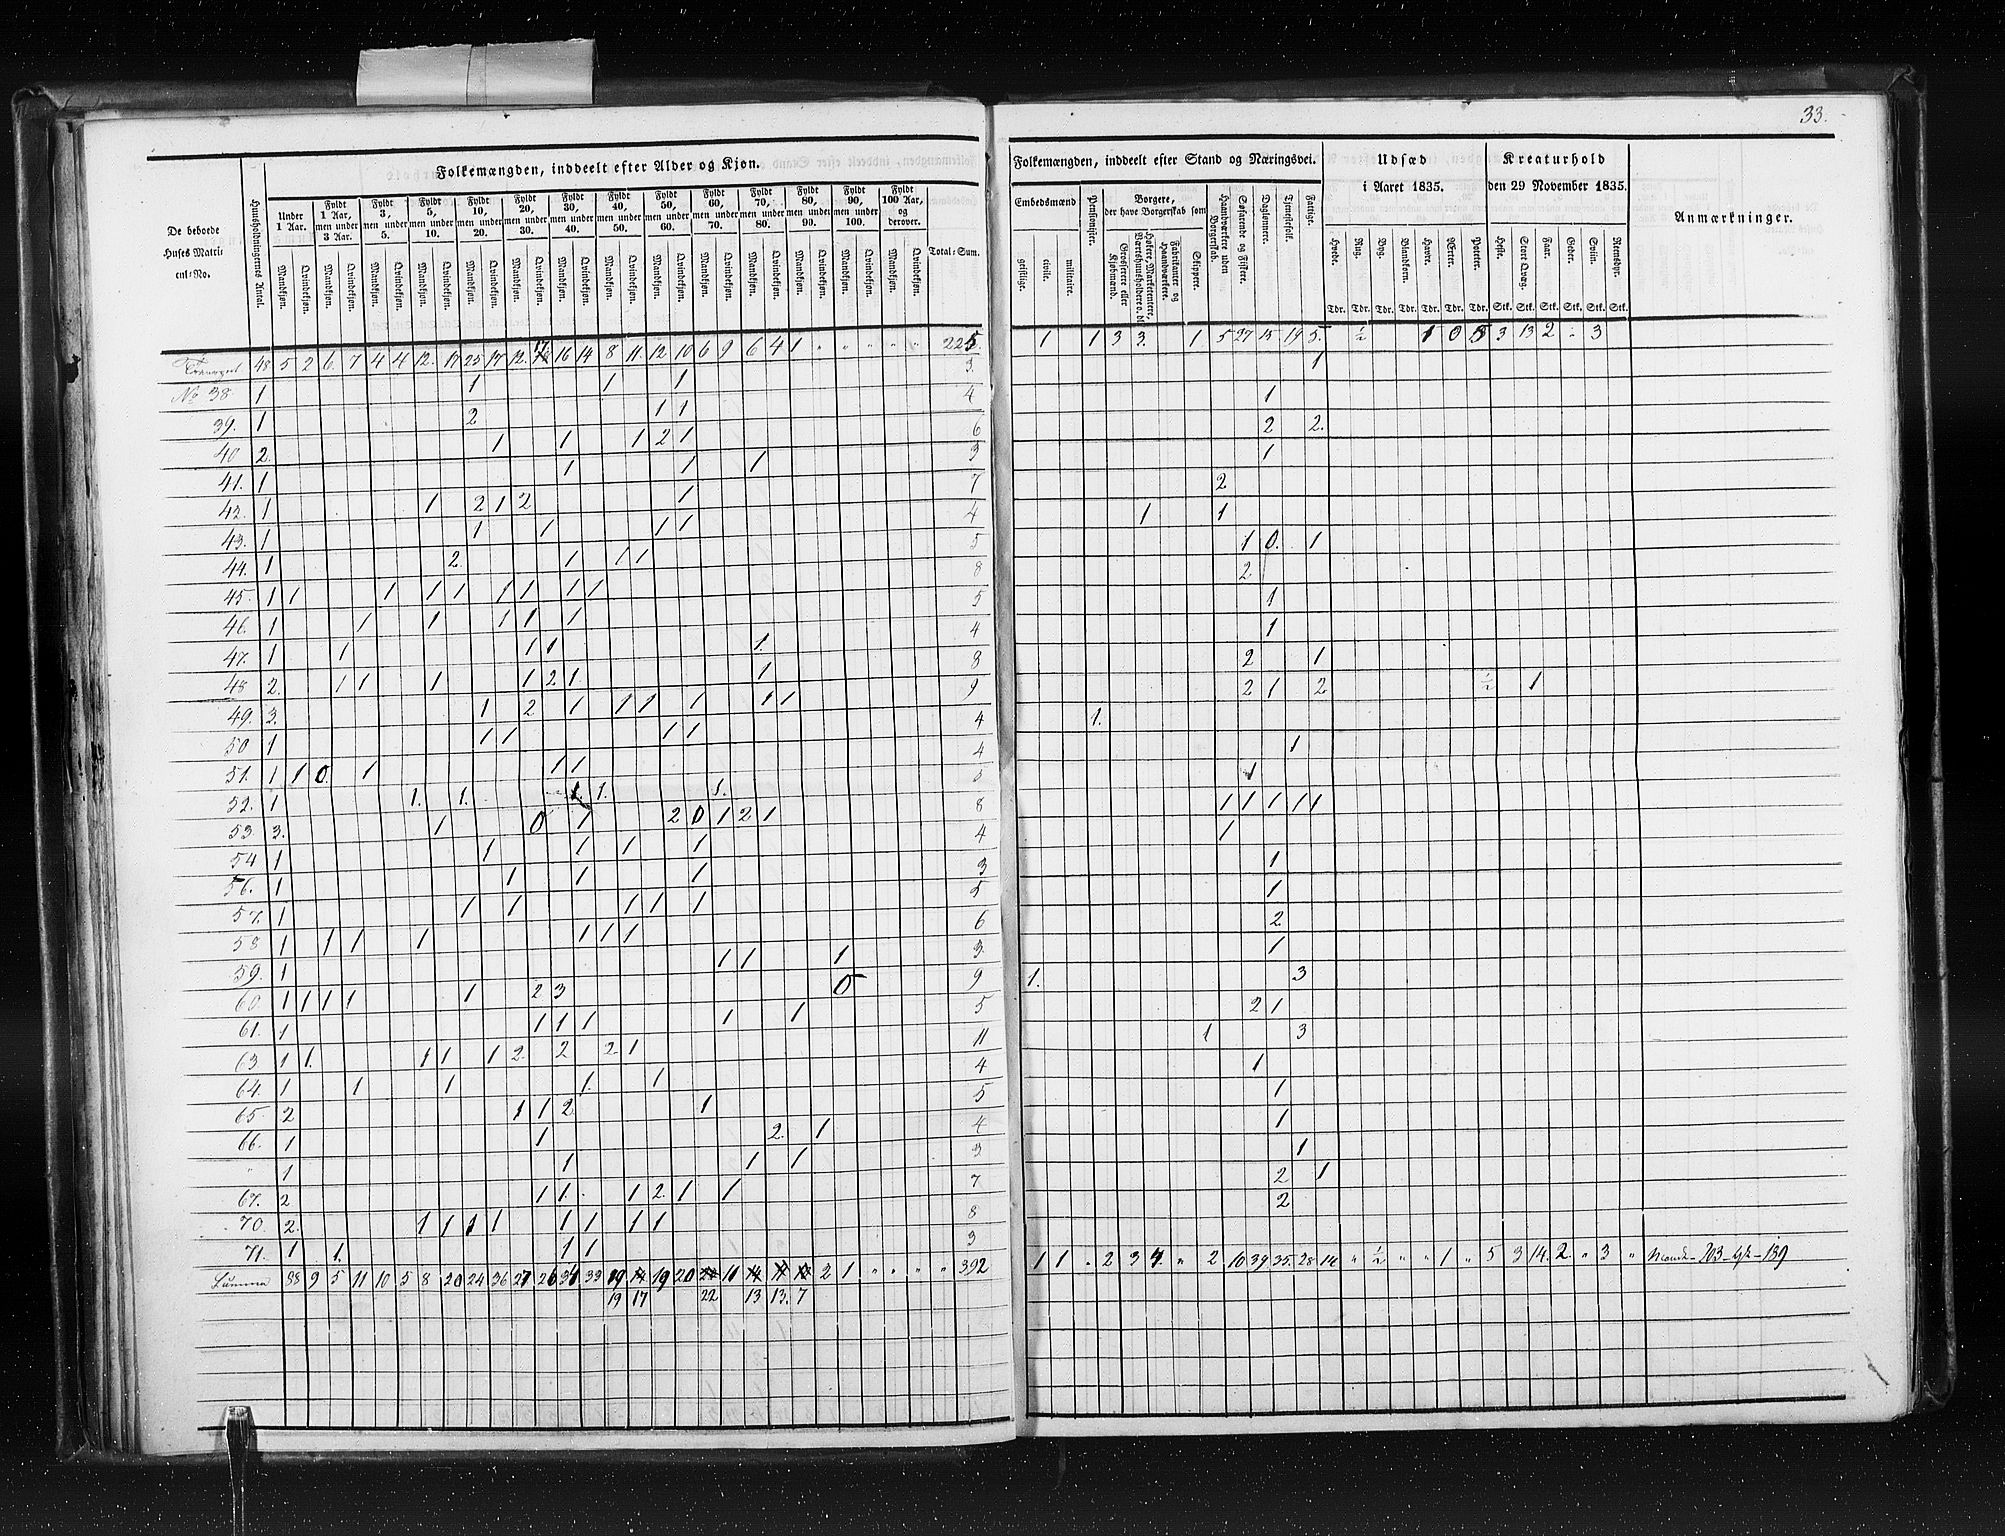 33.
Folkemængden, inddeelt efter Alder og Kjøn.
De beboede Huses Matricul-No.
Huusholdningernes Antal.
Under 1 Aar.
Fyldt 1 Aar, men under 3 Aar.
Fyldt 3, men under 5.
Fyldt 5, men under 10.
Fyldt 10, men under 20.
Fyldt 20, men under 30.
Fyldt 30, men under 40.
Fyldt 40, men under 50.
Fyldt 50, men under 60.
Fyldt 60, men under 70.
Fyldt 70, men under 80.
Fyldt 80, men under 90.
Fyldt 90, men under 100.
Fyldt 100 Aar, og derover.
Total-Sum.
Mandkjøn. Qvindekjøn. Mandkjøn. Qvindekjøn. Mandkjøn. Qvindekjøn. Mandkjøn. Qvindekjøn. Mandkjøn. Qvindekjøn. Mandkjøn. Qvindekjøn. Mandkjøn. Qvindekjøn. Mandkjøn. Qvindekjøn. Mandkjøn. Qvindekjøn. Mandkjøn. Qvindekjøn. Mandkjøn. Qvindekjøn. Mandkjøn. Qvindekjøn. Mandkjøn. Qvindekjøn. Mandkjøn. Qvindekjøn.
48 5 2 6. 7 4 4 12. 17 25 17 12. 17 16 14 8 11. 12 10 6 9 6 4 1 " " " " " 225.
No 38 1 1 1 1 3.
39. 1 2 1 1 4
40 2. 1 1 1 2 1 6
41. 1 1 1 1 3
42. 1 1 2 1 2 1 7
43. 1 1 1 1 1 4
44. 1 2. 1 1 1 5
45. 1 1 1 1 1 1 1 1 1 8
46. 1 1 1 1 1 1 5
47. 1 1 1 1 1. 4
48 2. 1 1 1 1 2 1. 1 8
49. 3. 1 2 1 1 1 1 1 1 9
50 1 1 1 1 1 4
51. 1 1 0. 1 1 1 4
52. 1 1. 1. 1. 1. 1. 5
53. 3. 1 0 1 2 0 1 2 1 8
54 1 1 1 1 1 4
56. 1 1 1 1 3
57. 1 1 1 1 1 1 5
58 1 1 1 1 1 1 1 6
59. 1 1 1 1 3.
60. 1 1 1 1 1 2 3 0 9
61. 1 1 1 1 1 1 5
63. 1 1. 1 1 1 2 2 2 1 11
64. 1 1 1 1. 1 4
65 2 1 1 2 1 5
66. 1 1 2. 1 4
" 1 1 1 1 3
67. 2 1 1. 1 2 1 1 7
70. 2. 1 1 1 1 1 1 1 1 8
71. 1 1. 1 1 3
Summa 88 9 5 11 10 5 8 20 24 36 27 26 34 33 19 19 20 11 2 1 " " " " 392
19 17 22 13 13. 7
Folkemængden, inddeelt efter Stand og Næringsvei.
Embedsmænd
geistlige. civile. militaire.
Pensionister.
Borgere, der have Borgerskab som
Grosserer eller Kjøbmænd.
Høkere, Marketentere, Værtshuusholdere o. dl.
Fabrikanter og Haandværkere.
Skippere.
Haandværkere uden Borgerskab.
Søfarende og Fiskere.
Daglønnere.
Tjenestefolk.
Fattige.
Udsæd i Aaret 1835.
Hvede. Rug. Byg. Blandkorn. Havre. Erter. Poteter.
Tdr. Tdr. Tdr. Tdr. Tdr. Tdr. Tdr.
Kreaturhold den 29 November 1835.
Heste. Stort Qvæg. Faar. Geder. Sviin. Reensdyr.
Stk. Stk. Stk. Stk. Stk. Stk.
Anmærkninger.
1 1 3 3. 1 5 27 15 19 5. ½ 1 0 5 3 13 2 " 3
1
1
2 2.
1
2
1 1
1 0. 1
2
1
1
2 1
2 1 2 ½ 1
1.
1
1
1 1 1 1 1
1
1
1
2
1
1. 3
2 1
1 3
1
1
1
1
2 1
2
1 1 " 2 3 4. " 2 10 39 35. 28 14 " ½ " " 1 " 5 3 14 2. " 3 "